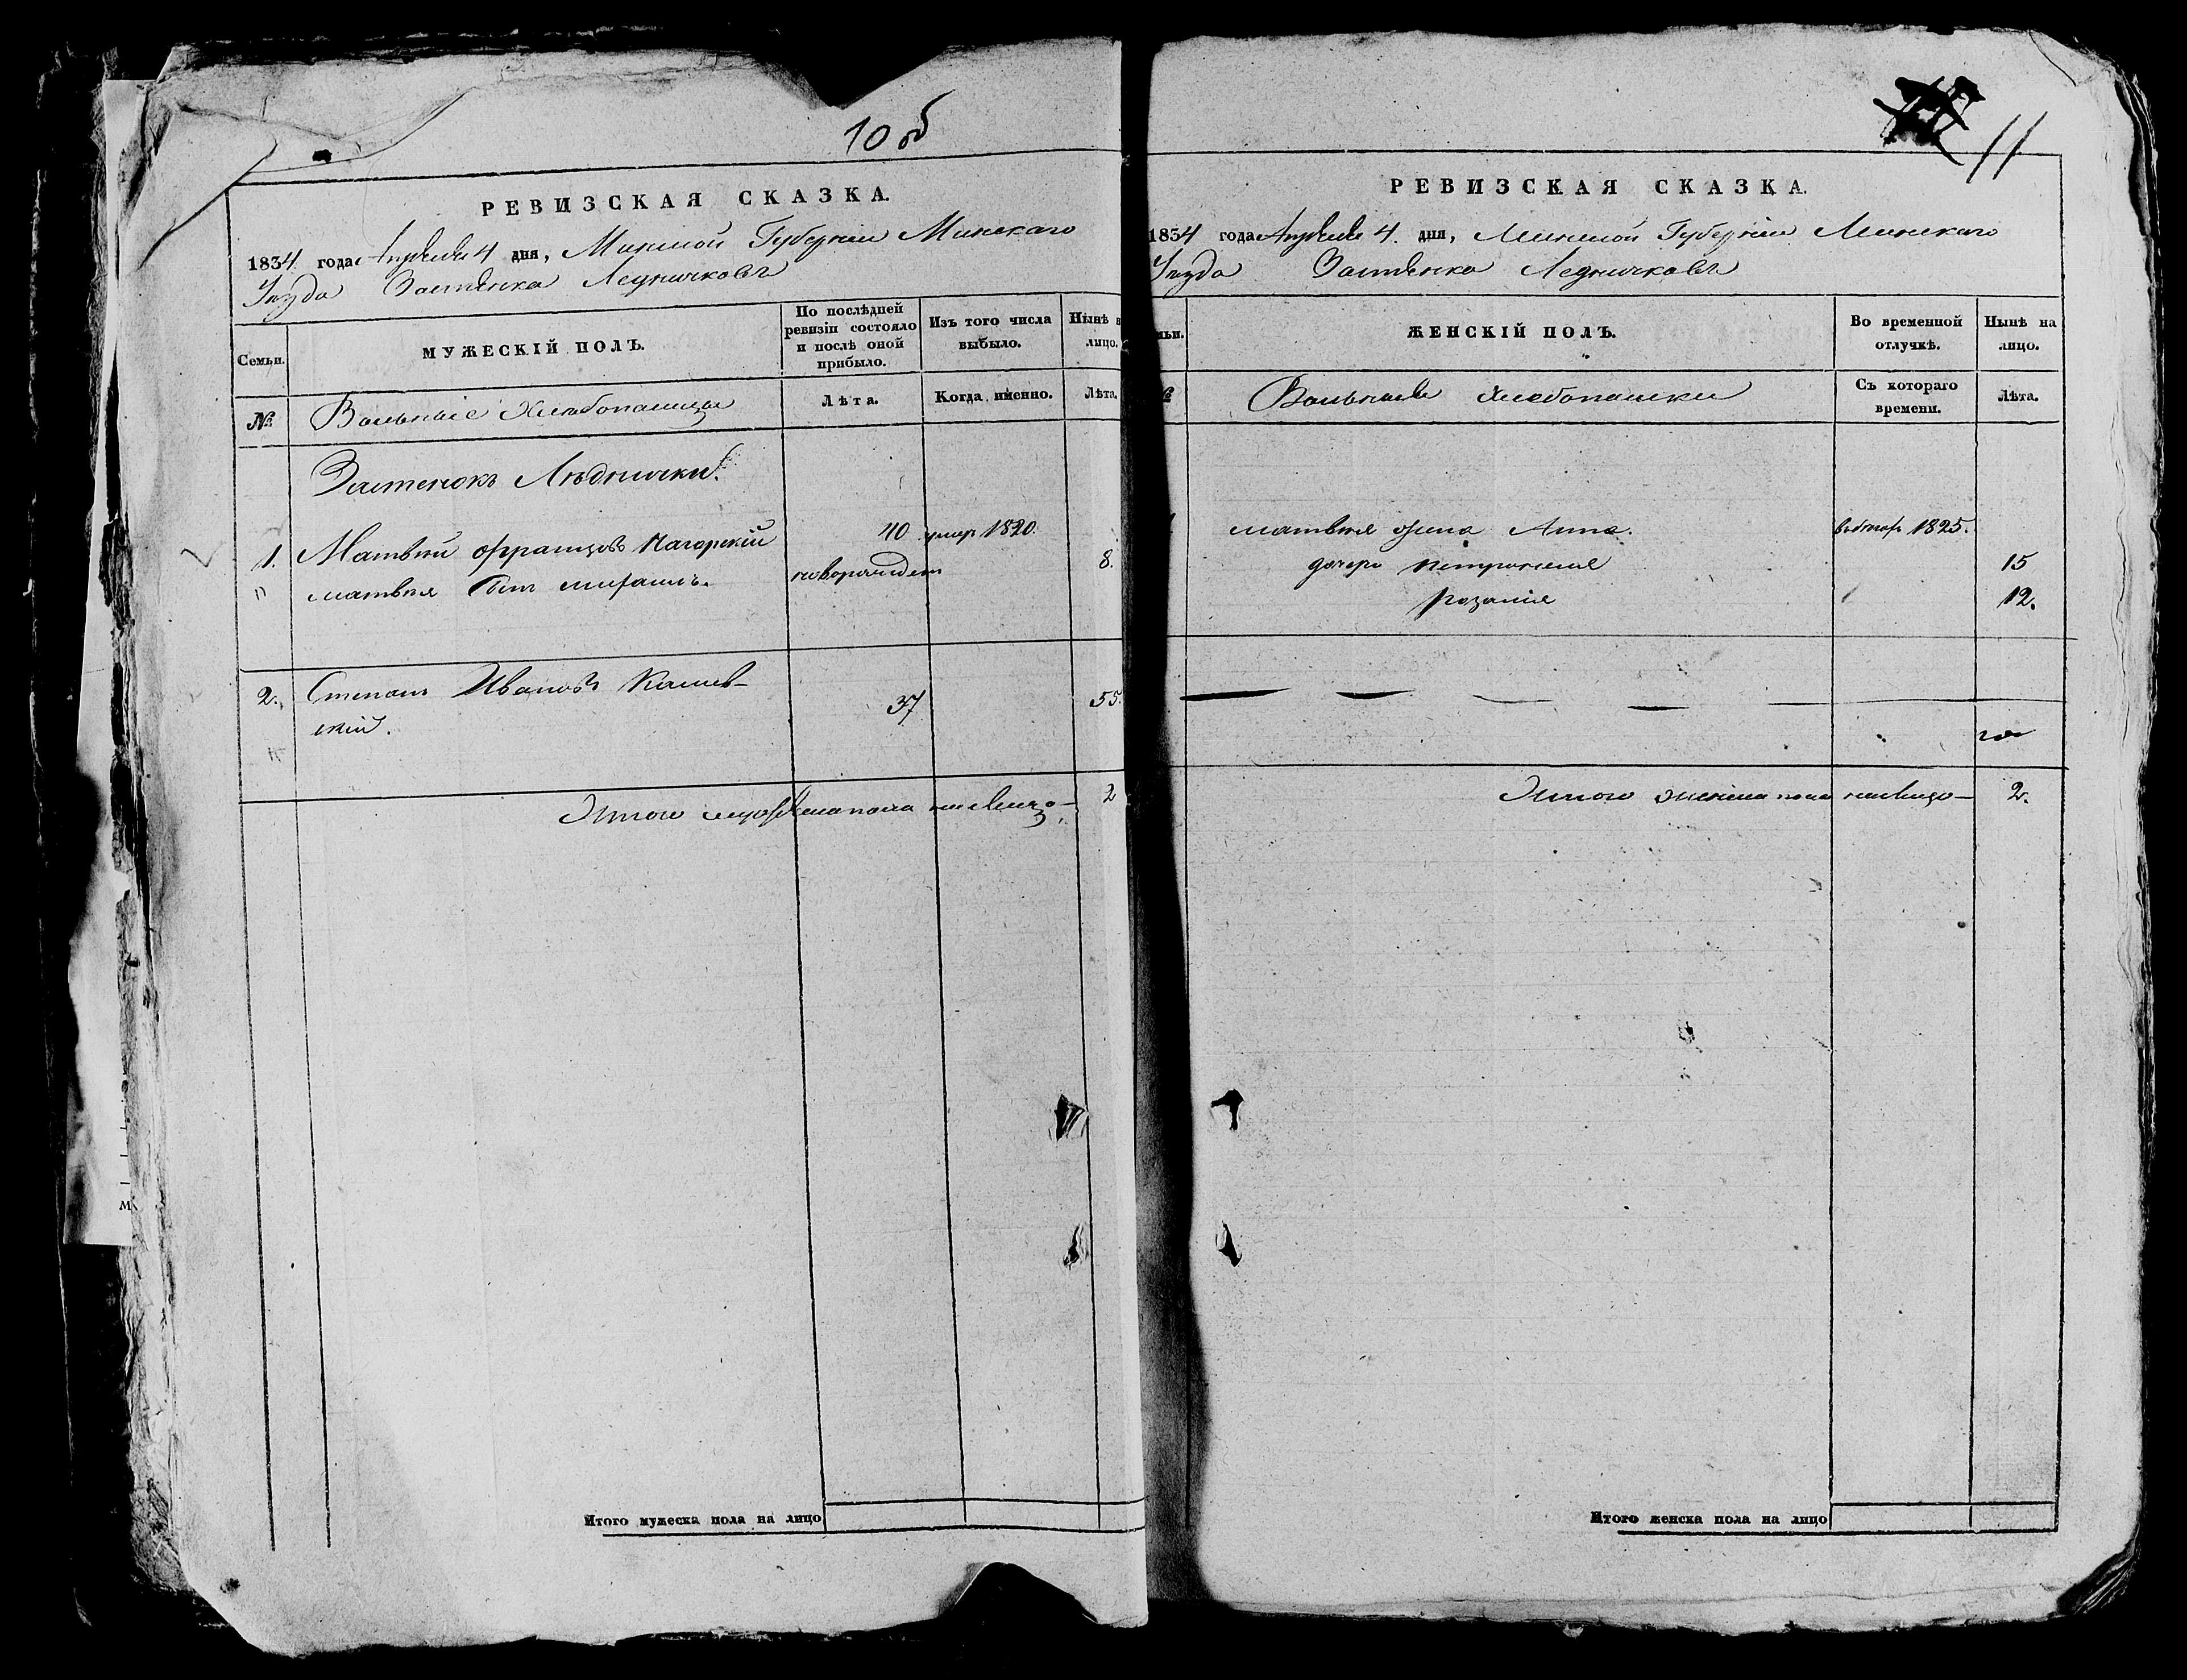 10 об
РЕВИЗСКАЯ СКАЗКА.
1834 года Апреля 4 дня, Минской Губерніи Минскаго
Уезда Застенка Ледничковъ
Семьи.
МУЖЕСКІЙ ПОЛЪ.
По послѣдней ревизіи состояло и послѣ оной прибыло.
Изъ того числа выбыло.
Нынѣ н
лицо.
№
Вольные Хлебопашцы
Лѣта.
Когда именно.
Лѣта.
Застенокъ Лѣднички.
1. Матвей Францовъ Нагорскій 40 умеръ 1820.
Матвея сынъ новорожден 8.
2. Степанъ Ивановъ 37 55.
скій.
Итого мужеска пола налицо 2
Итого мужеска пола на лицо
11
РЕВИЗСКАЯ СКАЗКА.
1834 года Апреля 4. дня, Минской Губерніи Минскаго
Уезда Застенка Ледничковъ
мьи.
ЖЕНСКІЙ ПОЛЪ.
Во временной отлучкѣ.
Нынѣ на лицо.
№
Вольные хлебопашки
Съ котораго времени.
Лѣта.
Матвея жена Анна. 1825.
дочери Петронеля 15
Розалія 12.
Итого женска пола налицо 2.
Итого женска пола на лицо